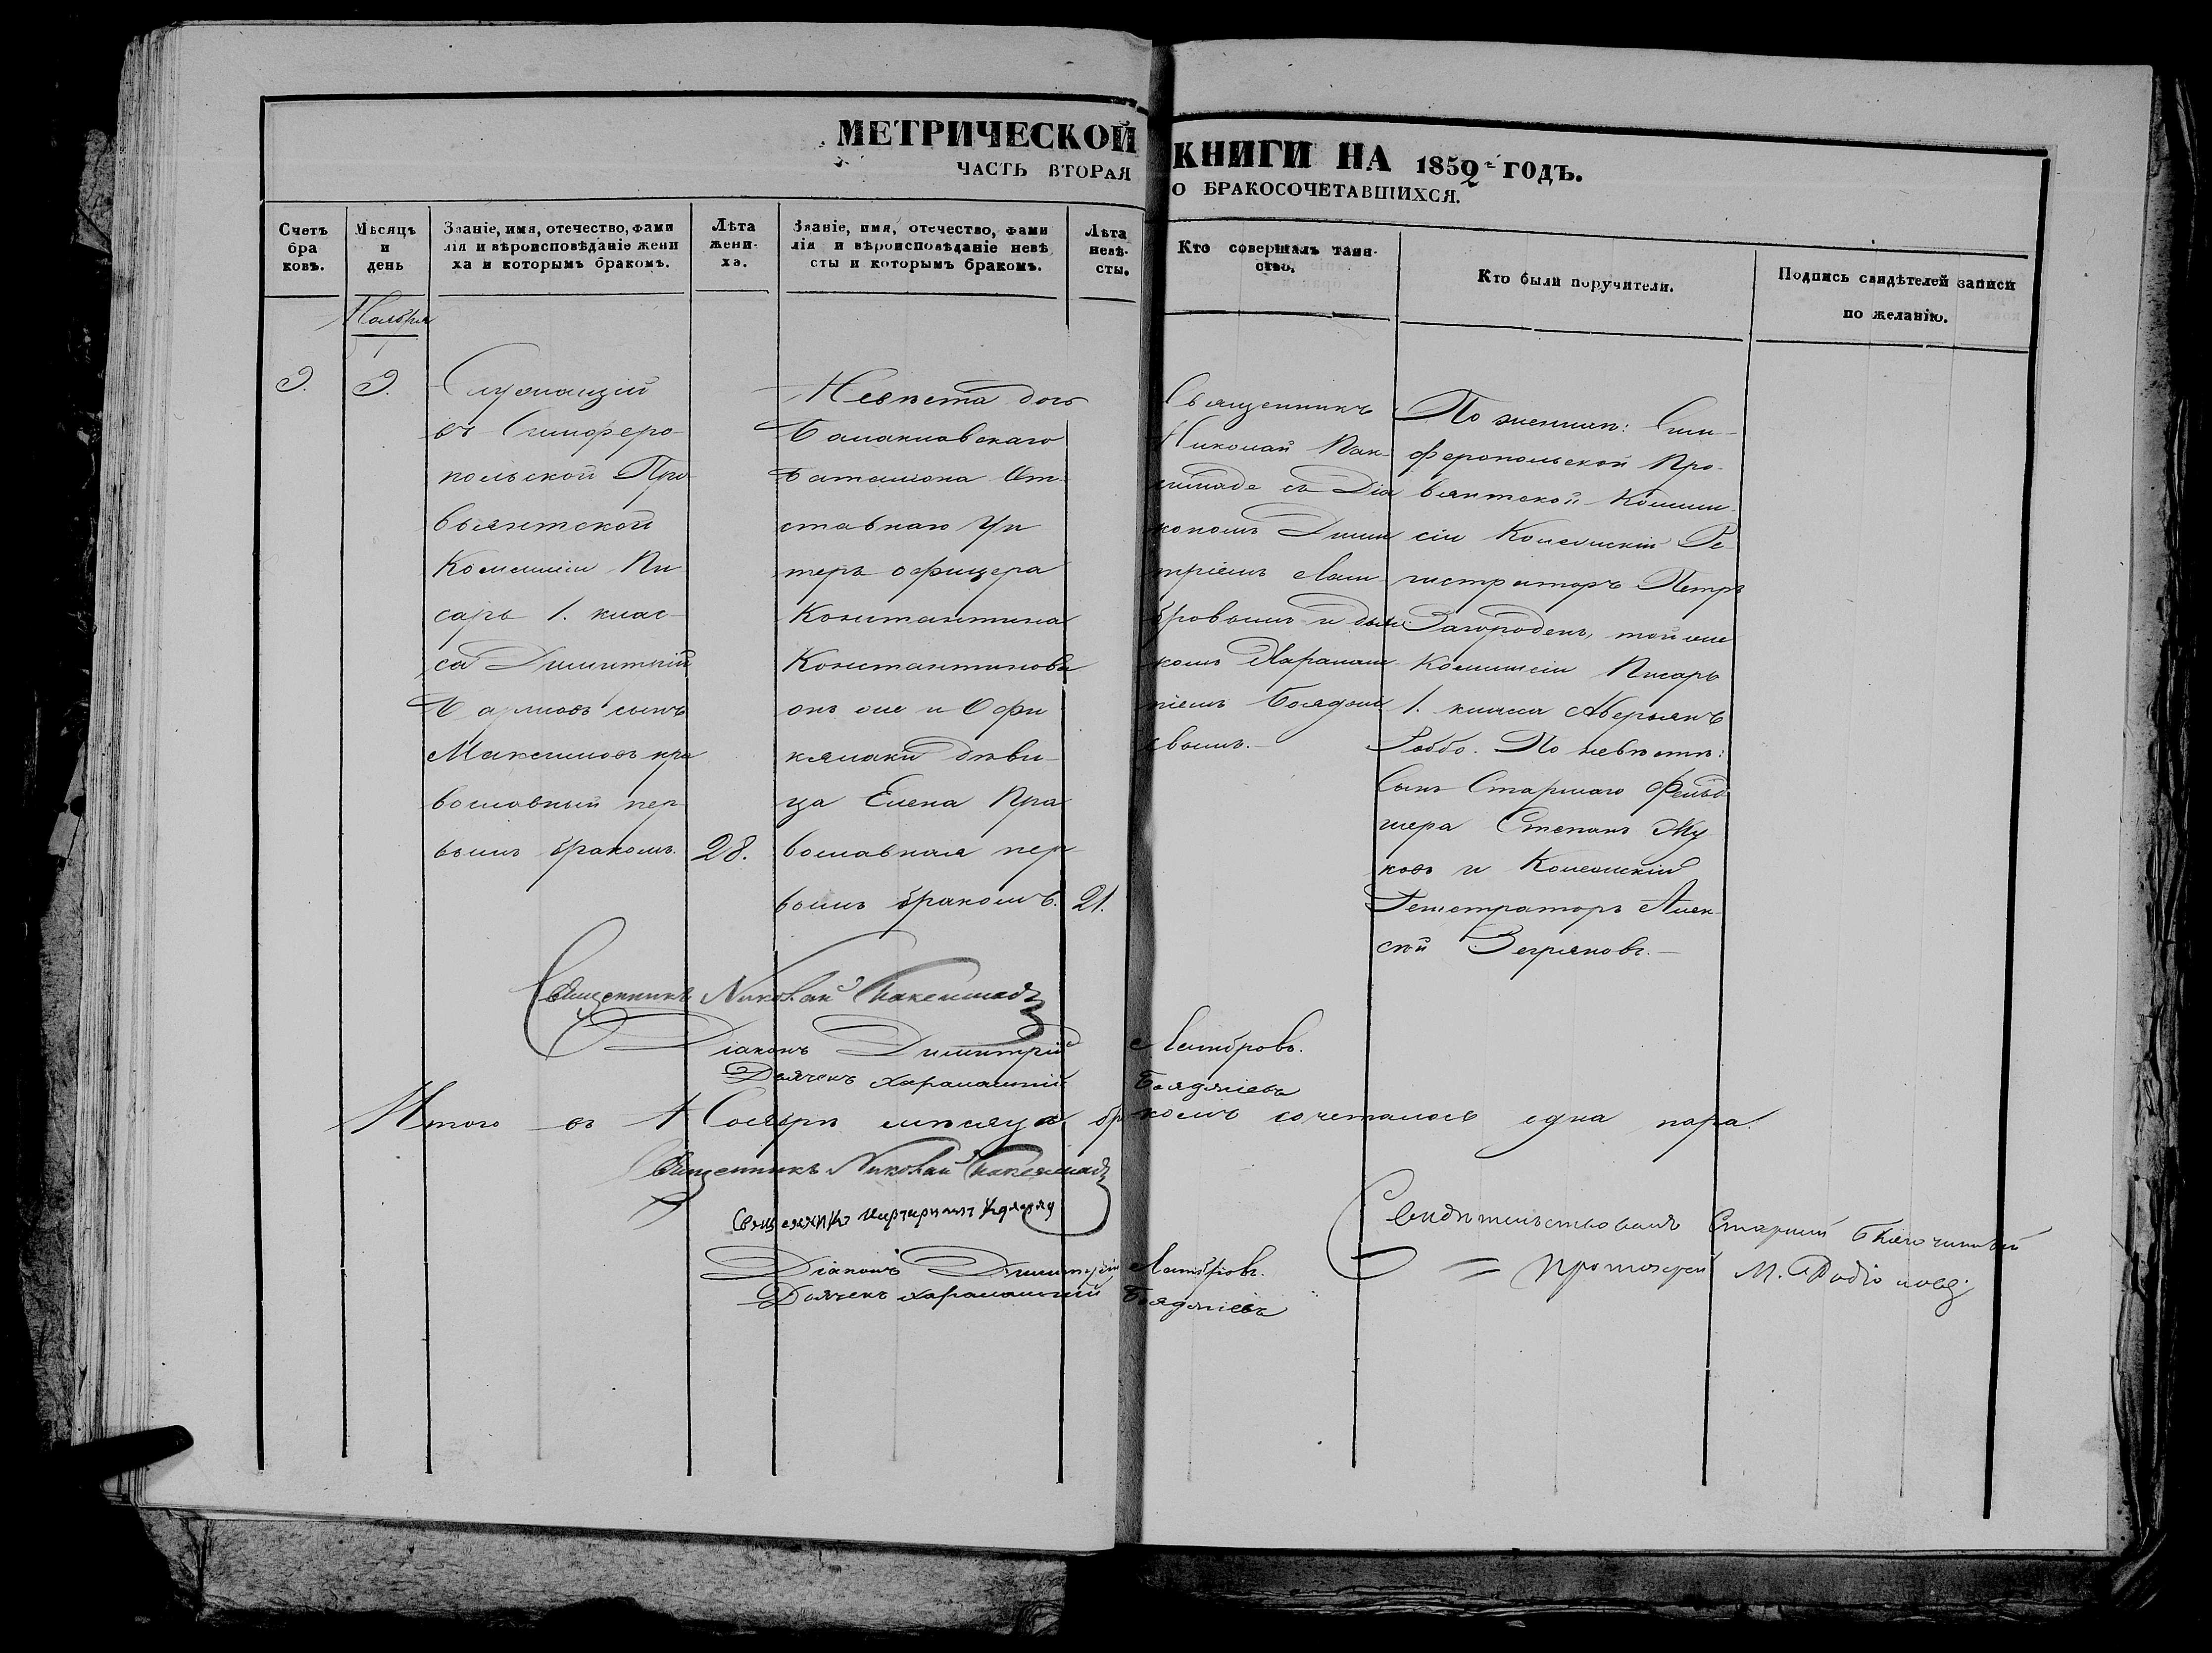 МЕТРИЧЕСКОЙ КНИГИ НА 1852й ГОДЪ.
ЧАСТЬ ВТОРАЯ О БРАКОСОЧЕТАВШИХСЯ.
Счетъ
бра
ковъ.
Мѣсяцъ
и
день
Званіе, имя, отечество, фами
лія и вѣроисповѣданіе жени
ха и которымъ бракомъ.
Лѣта
жени-
ха.
Званіе, имя, отечество, фами
лія и вѣроисповѣданіе невѣ
сты и которымъ бракомъ.
Лѣта
невѣ-
сты.
Кто совершалъ таин-
ство.
Кто были поручители.
Подпись свидѣтелей записи
по желанію.
Ноября
9.
9.
Служащій
въ Симферо-
польской Про
віянтской
Комиссіи Пи
сарь 1. клас-
са Димитрій
сынъ
Максимовъ пра
вославный пер-
вымъ бракомъ.
28.
Невѣста дочь
Балаклавскаго
баталіона От-
ставнаго Ун
теръ офицера
Константина
Константинова
онъ же и Офи
кялаки дѣви-
ца Елена Пра
вославная пер-
вымъ бракомъ.
21.
Священникъ
Николай
съ Діа
кономъ Дими
тріемъ Лам-
бровымъ и дья
комъ Харалам
піемъ
евымъ.
По женихѣ: Сим-
феропольской Про-
віянтской Комми-
сіи Колежскій Ре-
гистраторъ Петръ
той же
Комиссіи Писарь
1. класса Аверьянъ
По невѣстѣ:
Сынъ Старшаго Фельд
шера Степанъ Жу
ковъ и Колежскій
Регистраторъ Алек
сѣй
Священникъ Николай
Діаконъ Димитрій Ламбровъ.
Дьячекъ Харалампій Бояджіевъ
Итого въ Ноябрѣ мѣсяцѣ бракомъ сочеталось одна пара.
Священникъ Николай
Священникъ
Діаконъ Димитрій Ламбровъ.
Дьячекъ Харалампій Бояджіевъ
Свидѣтельствовалъ Старшій Благочинный
Протоіерей М. Родіоновъ